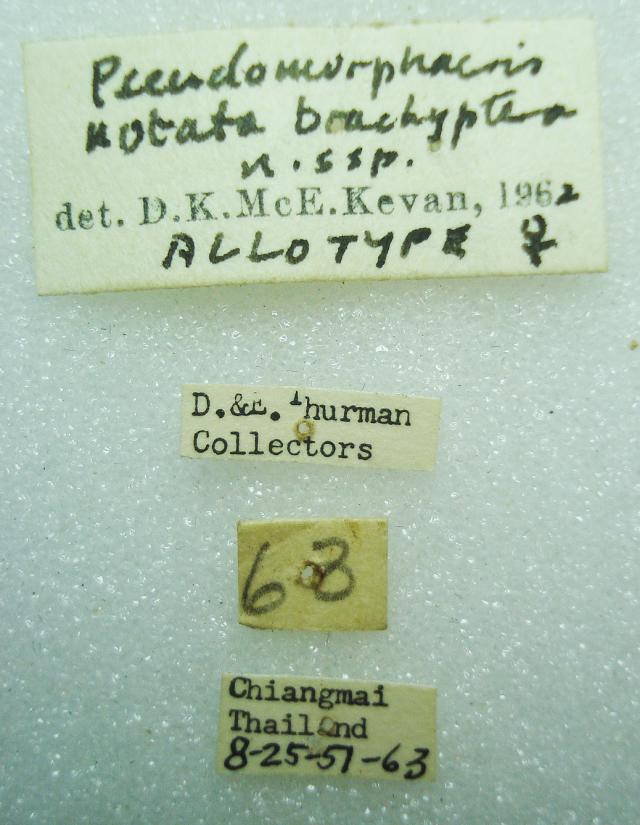 Pseudomorphacris
notata brachyptera
n. ssp.
det. D.K.McE.Kevan, 1962
ALLOTYPE ♀
D.&E. Thurman
Collectors
63
Chiangmai
Thailand
8-25-51-63